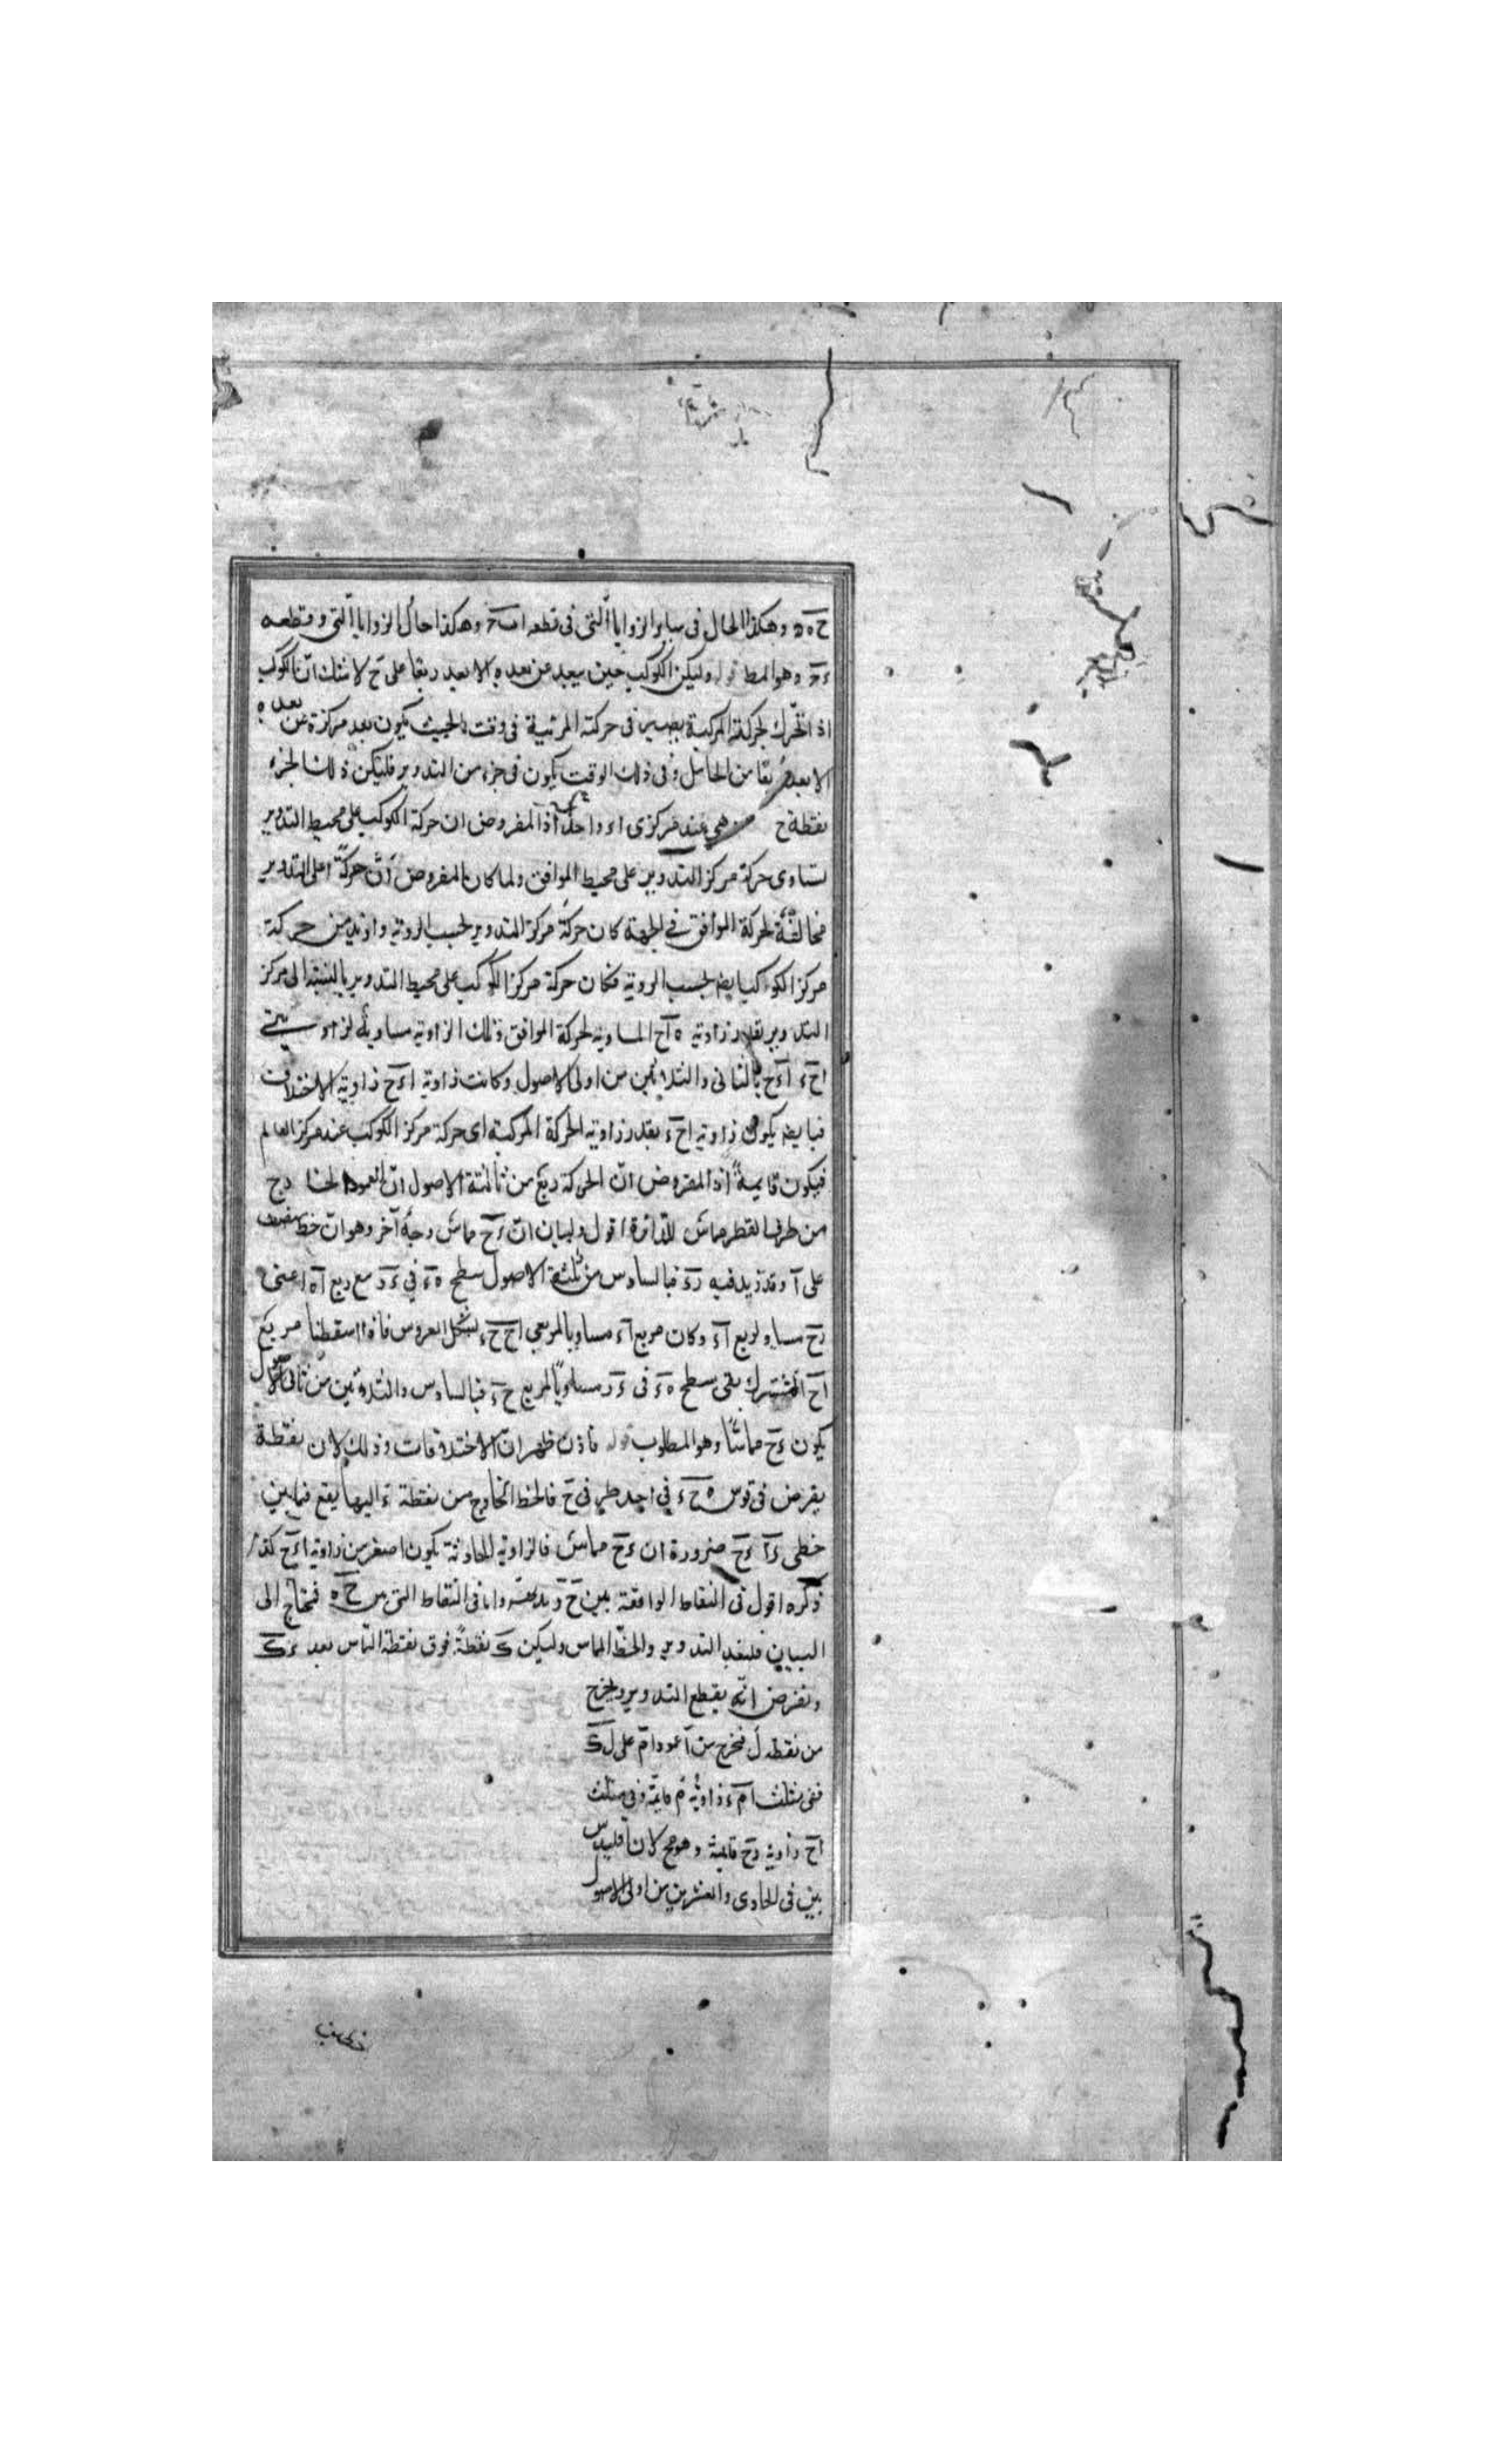 ح ه ه وهكذا الحال فى ساير الزوايا التى فى قطعه وهكذا حال الزوايا التى و قطعه
ءح وهو المط قوله وليكن الكوكب حين يبعد عن بعده الابعد ربعا على ح لا شك ان الكوكب
اذا تحرك بحركته المركبة يصير فى حركته المرئية فى وقت بالحيث يكون بعد مركزه عن بعده
الابعد ربعا من الحاصل وفى ذلك الوقت يكون فى جزء من التدوير فليكن ذلك الجزء
نقطة ح هى عند مركزى اء واحد اذ المفروض ان حركة الكوكب على محيط التدوير
تساوى حركة مركز التدوير على محيط الموافق ولما كان المفروض ان حركة اعلى التدوير
مخالفة لحركة الموافق في الجهة كان حركة مركز التدوير بحسب الروية وازيد من حركة
مركز الكوكب ايضا بحسب الروية فكان حركة مركز الكوكب على محيط التدوير بالنسبة الى مركز
التدوير بقدر زاوية ه اح المساوية لحركة الموافق وتلك الزاوية مساوية لزاويتى
اح ء اءح بالثانى والثلاثين من اولى الاصول وكانت زاوية اءح زاوية الاختلاف
فبايضه يكون زاوية اح ء بقدر زاوية الحركة المركبة اى حركة مركز الكوكب عند مركز العالم
فيكون قايمة اذ المفروض ان الحركة ربع من ثالثة الاصول ان العمود الخارج
من طرف القطر مماس للدائرة اقول ولبيان ان ءح مماس وجه آخر وهو ان خط منصف
على آ وقد زيد فيه رء فبالسادس من ثلثة الاصول سطح ه ء في ءر مع ربع آه اعنى
رح مساو لربع آء وكان مربع آء مساويا لمربعى اح حء بشكل العروس فاذا اسقطنا مربع
اح المشترك بقى سطح ه ء فى ءر مساويا لمربع حء فبالسادس والثلاثين من ثانى الاصول
يكون ءح مماسا وهو المطلوب قوله فاذن ظهر ان الاختلافات وذلك لان نقطة
يفرض فى قوس ه ح ء في احد طرفى ح فالخط الخارج من نقطة ء اليها يقع فيما بين
خطى ءآ ءح ضرورة ان ءح مماس فالزاوية الحادثة يكون اصغر من زاوية اءح كذا
ذكره اقول فى النقاط الواقعة بين ح ر واما فى النقاط التى بين ح ه فمحتاج الى
البيان فلنعد التدوير والخط المماس وليكن ك نقطة فوق نقطة التماس بعد ءك
ونفرض انه يقطع التدوير ويخرج
من نقطه ل فنخرج من آ عمود ام على ل ك
ففى مثلث ام ء زاوية م قايمة وفى مثلث
اح زاوية ءح قايمة وهو مح كان اقليدس
بين فى الحادى والعشرين من اولى الاصول